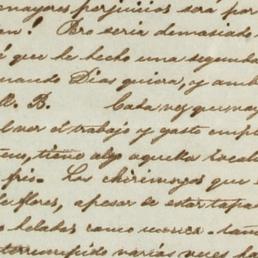 mayores perjuicios será por
an! Pero seria demasiado
é que he hecho una segunda
uando Dios quiera, y amb
R. B. Cada vez que
el nor el trabajo y gasto emp
teus, tiene algo aquella local
frio. Los chirimoyos que
flores, apesar de estar tapa
heladas como nunca
terrumpido varias veces ha